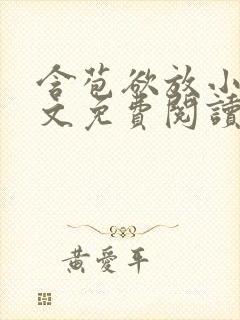 含苞欲放小
文免費閱讀
黃愛平